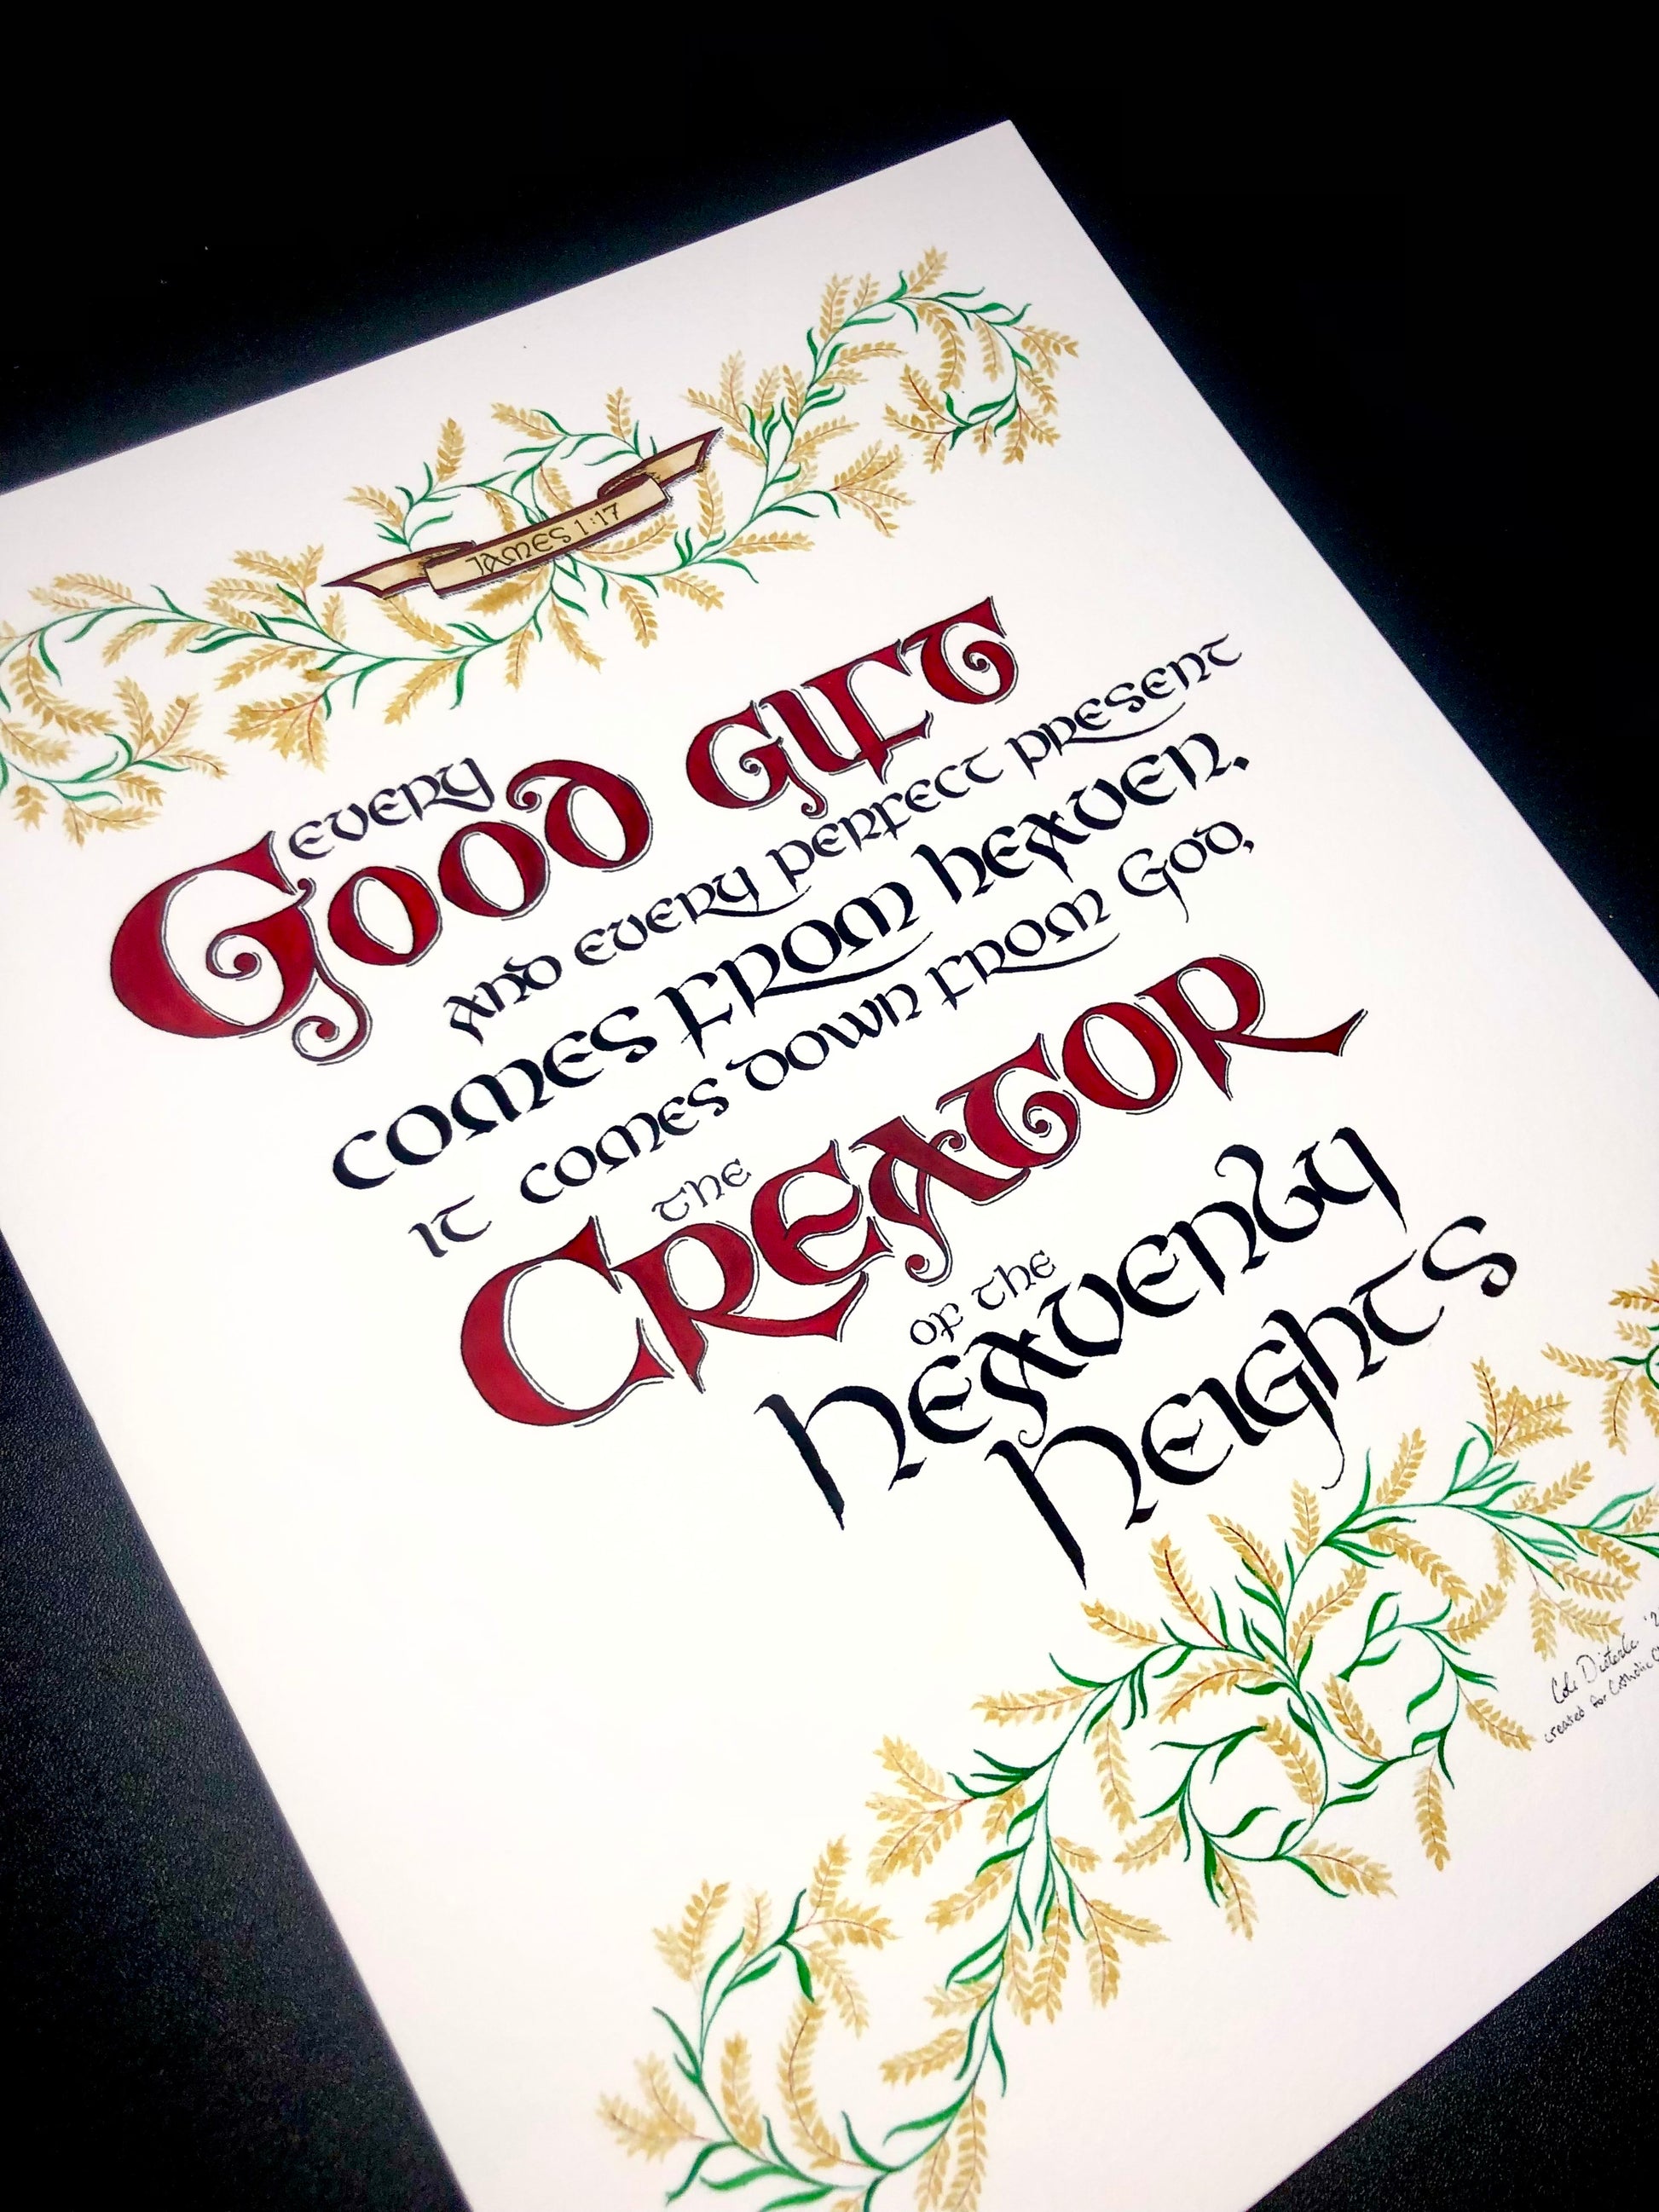 JAMES 1:17
EVERY
GOOD GIFT
AND EVERY PERFECT PRESENT
COMES FROM HEAVEN.
IT COMES DOWN FROM GOD,
THE
CREATOR
OF THE
HEAVENLY
HEIGHTS
Cole Dieterle
created for Catholic